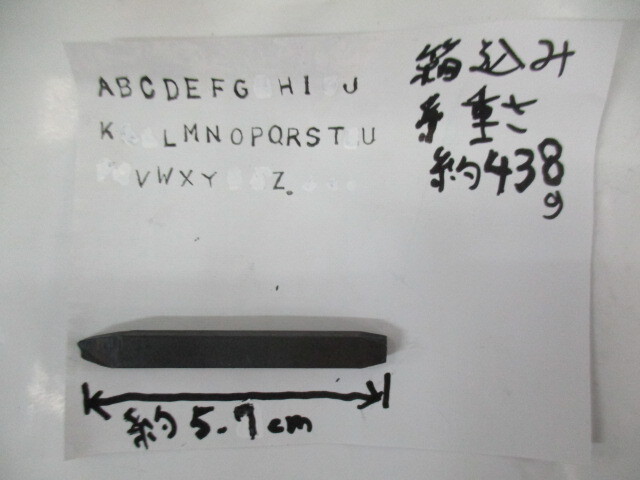 ABCDEFG HI J
K LMNOPQRST U
VWXY Z.
箱込み
重さ
約438
g
約5.7cm